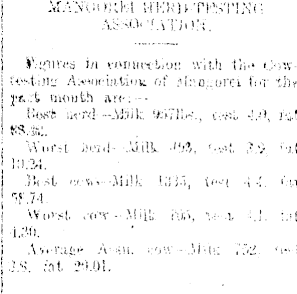 MANGOREI HERD-TESTING
ASSOCIATION.
Figures in connection with the Cow-
testing Association of Mangorei for the
past month are:—
Best herd—Milk 957lbs., test 4.0, fat
Worst herd—Milk 493, test 3.9, fat
Best cow—Milk 1335, test 4.4, fat
58.74.
Worst cow—Milk 105, test 4.1, fat
4.30.
Average Assn. cow—Milk 752, test
3.8, fat 29.01.